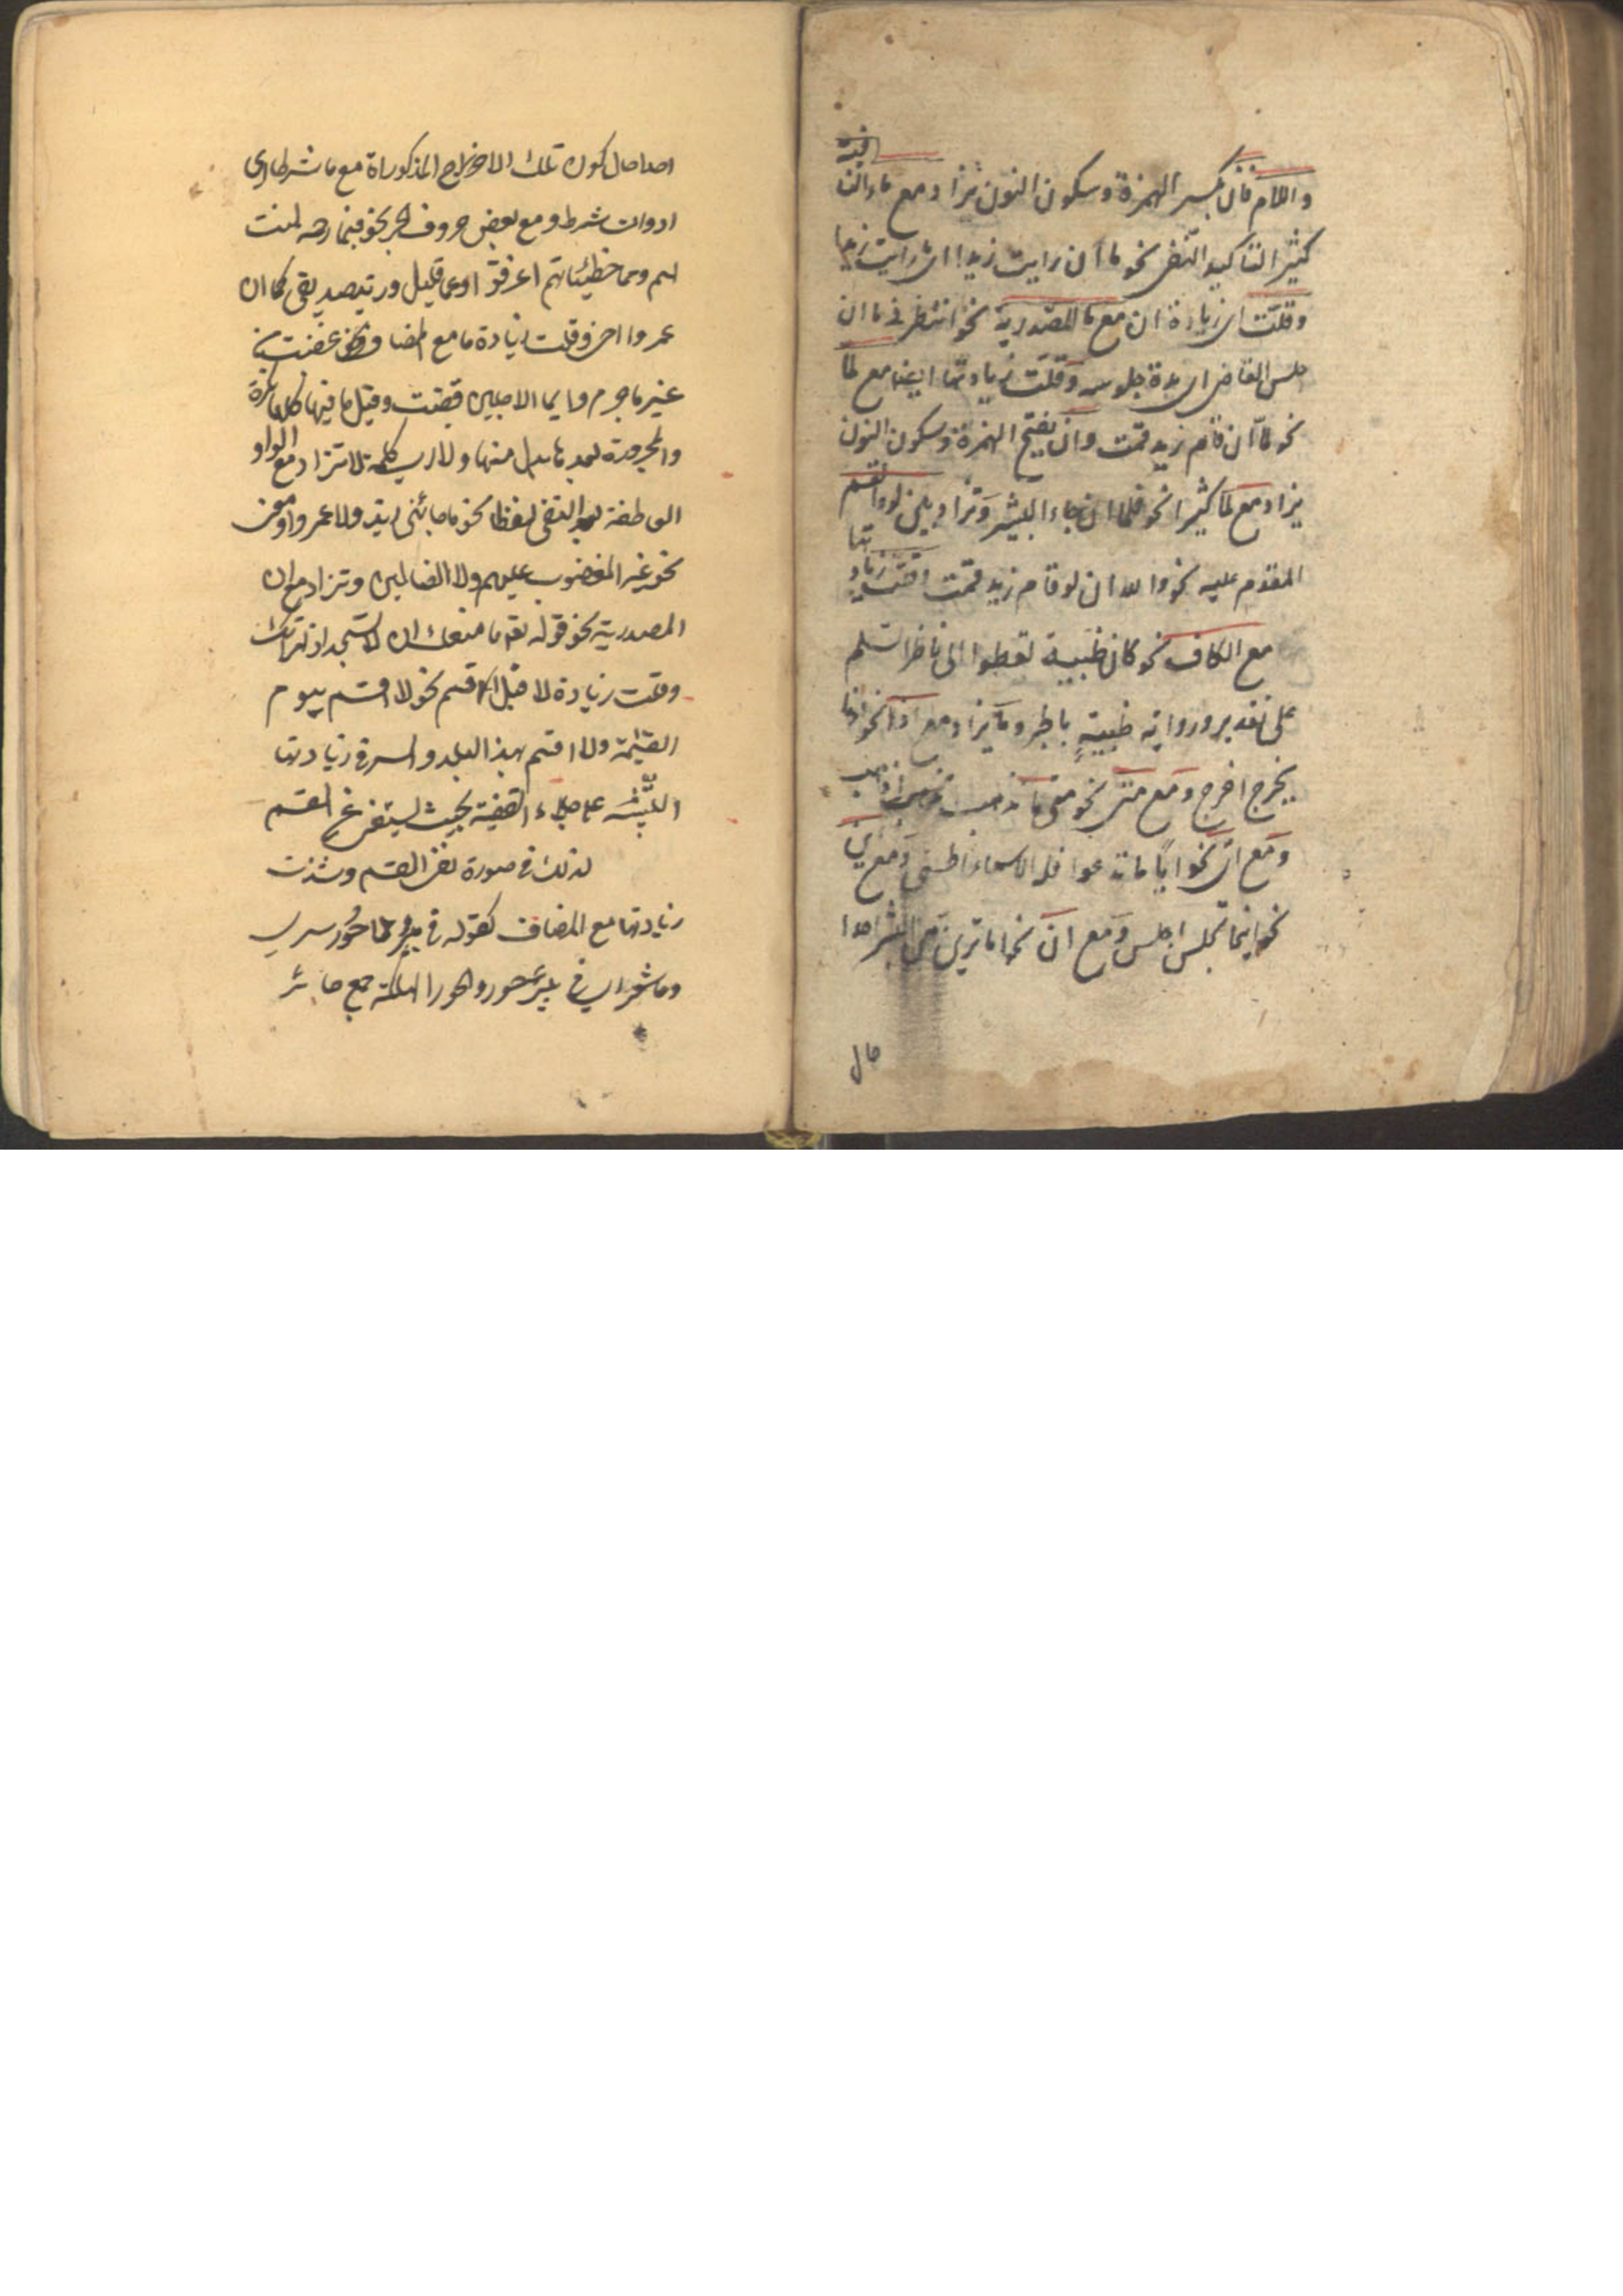 واللام فان بكسر الهمزة وسكون النون تزاد مع ماء النا
فية
كثيرا لتاكيد النفى نحو ما ان رايت زيدا اى ما رايت زيدا
وقلت اى زيادة ان مع ما المصدرية نحو انتظرنى ما ان
جلس القاضى اى مدة جلوسه وقلت زيادتها ايضا مع لما
نحو لما ان قام زيد قمت وان بفتح الهمزة وسكون النون
يزاد مع لما كثيرا نحو فلما ان جاء البشير وتزاد بين لو والقسم
المقدم عليه نحو والله ان لو قام زيد قمت وقلت زياد
تها
مع الكاف نحو كان ظبية تعطوا الى ناظر السلم
على تقدير رواية ظبية بالجر وما يزاد مع اذا نحو اذا ما
يخرج اخرج ومع متى نحو متى ما تذهب اذهب
ومع اى نحو اياما تدعوا فله الاسماء الحسنى ومع اين
نحو اينما تجلس اجلس ومع ان نحو اما ترين من البشر احدا
حال
كون تلك المذكوراة مع ما شرطا اى
ادوات شرط ومع بعض حروف الجر نحو فبما رحمة لنت
لهم ومما خطيئاتهم اغرقوا وعما قليل وزيد صديقى كما ان
عمروا اخى وقلت زيادة ما مع المضاف نحو غضبت
غير ما جرم وايما الاجلين قضيت وقيل ما فيها نكرة
والمجرورة بعد ما بدل منها ولا اى كلمة لا تزاد مع الواو
العاطفة بعد النفى لفظا نحو ما جائنى زيد ولا عمرو او معنى
نحو غير المغضوب عليهم ولا الضالين وتزاد مع ان
المصدرية نحو قوله تع ما منعك ان لا تسجد اذ امرتك
وقلت زيادة لا قبل اقسم نحو لا اقسم بيوم
القيمة ولا اقسم بهذا البلد والسر فى زيادتها
التنبيه على جلاء القضية بحيث يستغنى عن القسم
لذلك فى صورة نفى القسم وشذت
زيادتها مع المضاف كقوله فى بير لا حور سرى
وما شعر اى فى بير حور والحور الهلكة جمع حائر